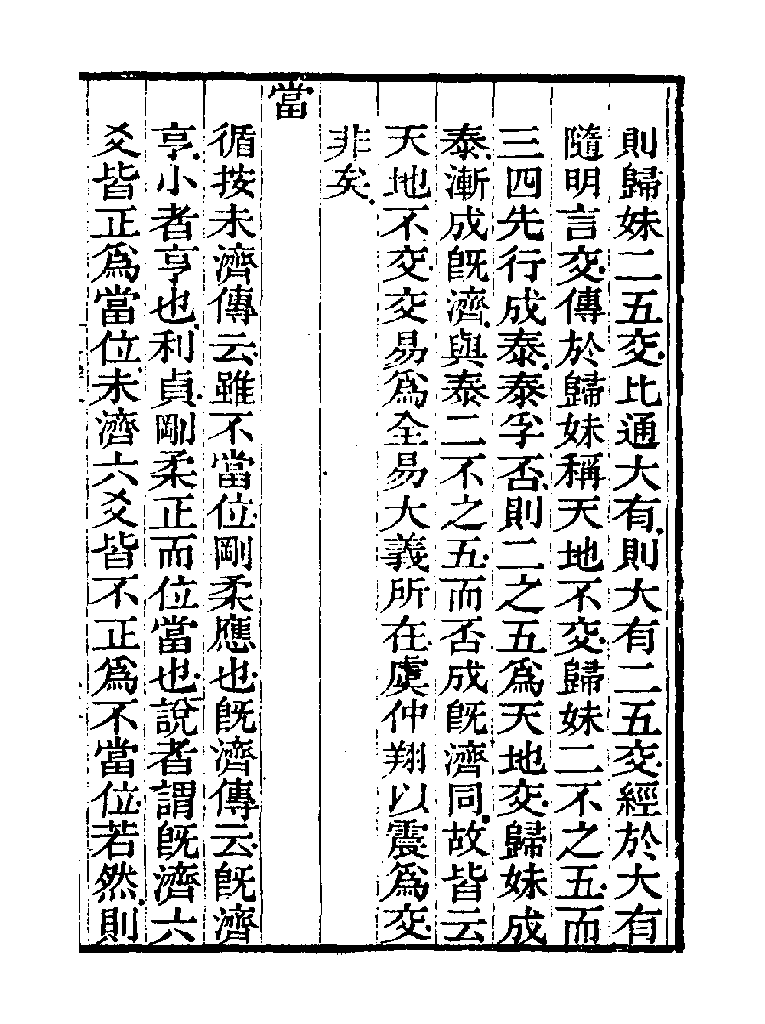 則歸妹二五交比通大有則大有二五交經於大有
隨明言交傳於歸妹稱天地不交歸妹二不之五而
三四先行成泰泰孚否則二之五爲天地交歸妹成
泰漸成旣濟與泰二不之五而否成旣濟同故皆云
天地不交交易爲全易大義所在虞仲翔以震爲交
非矣
當
循按未濟傳云雖不當位剛柔應也旣濟傳云旣濟
亨小者亨也利貞剛柔正而位當也說者謂旣濟六
爻皆正爲當位未濟六爻皆不正爲不當位若然則